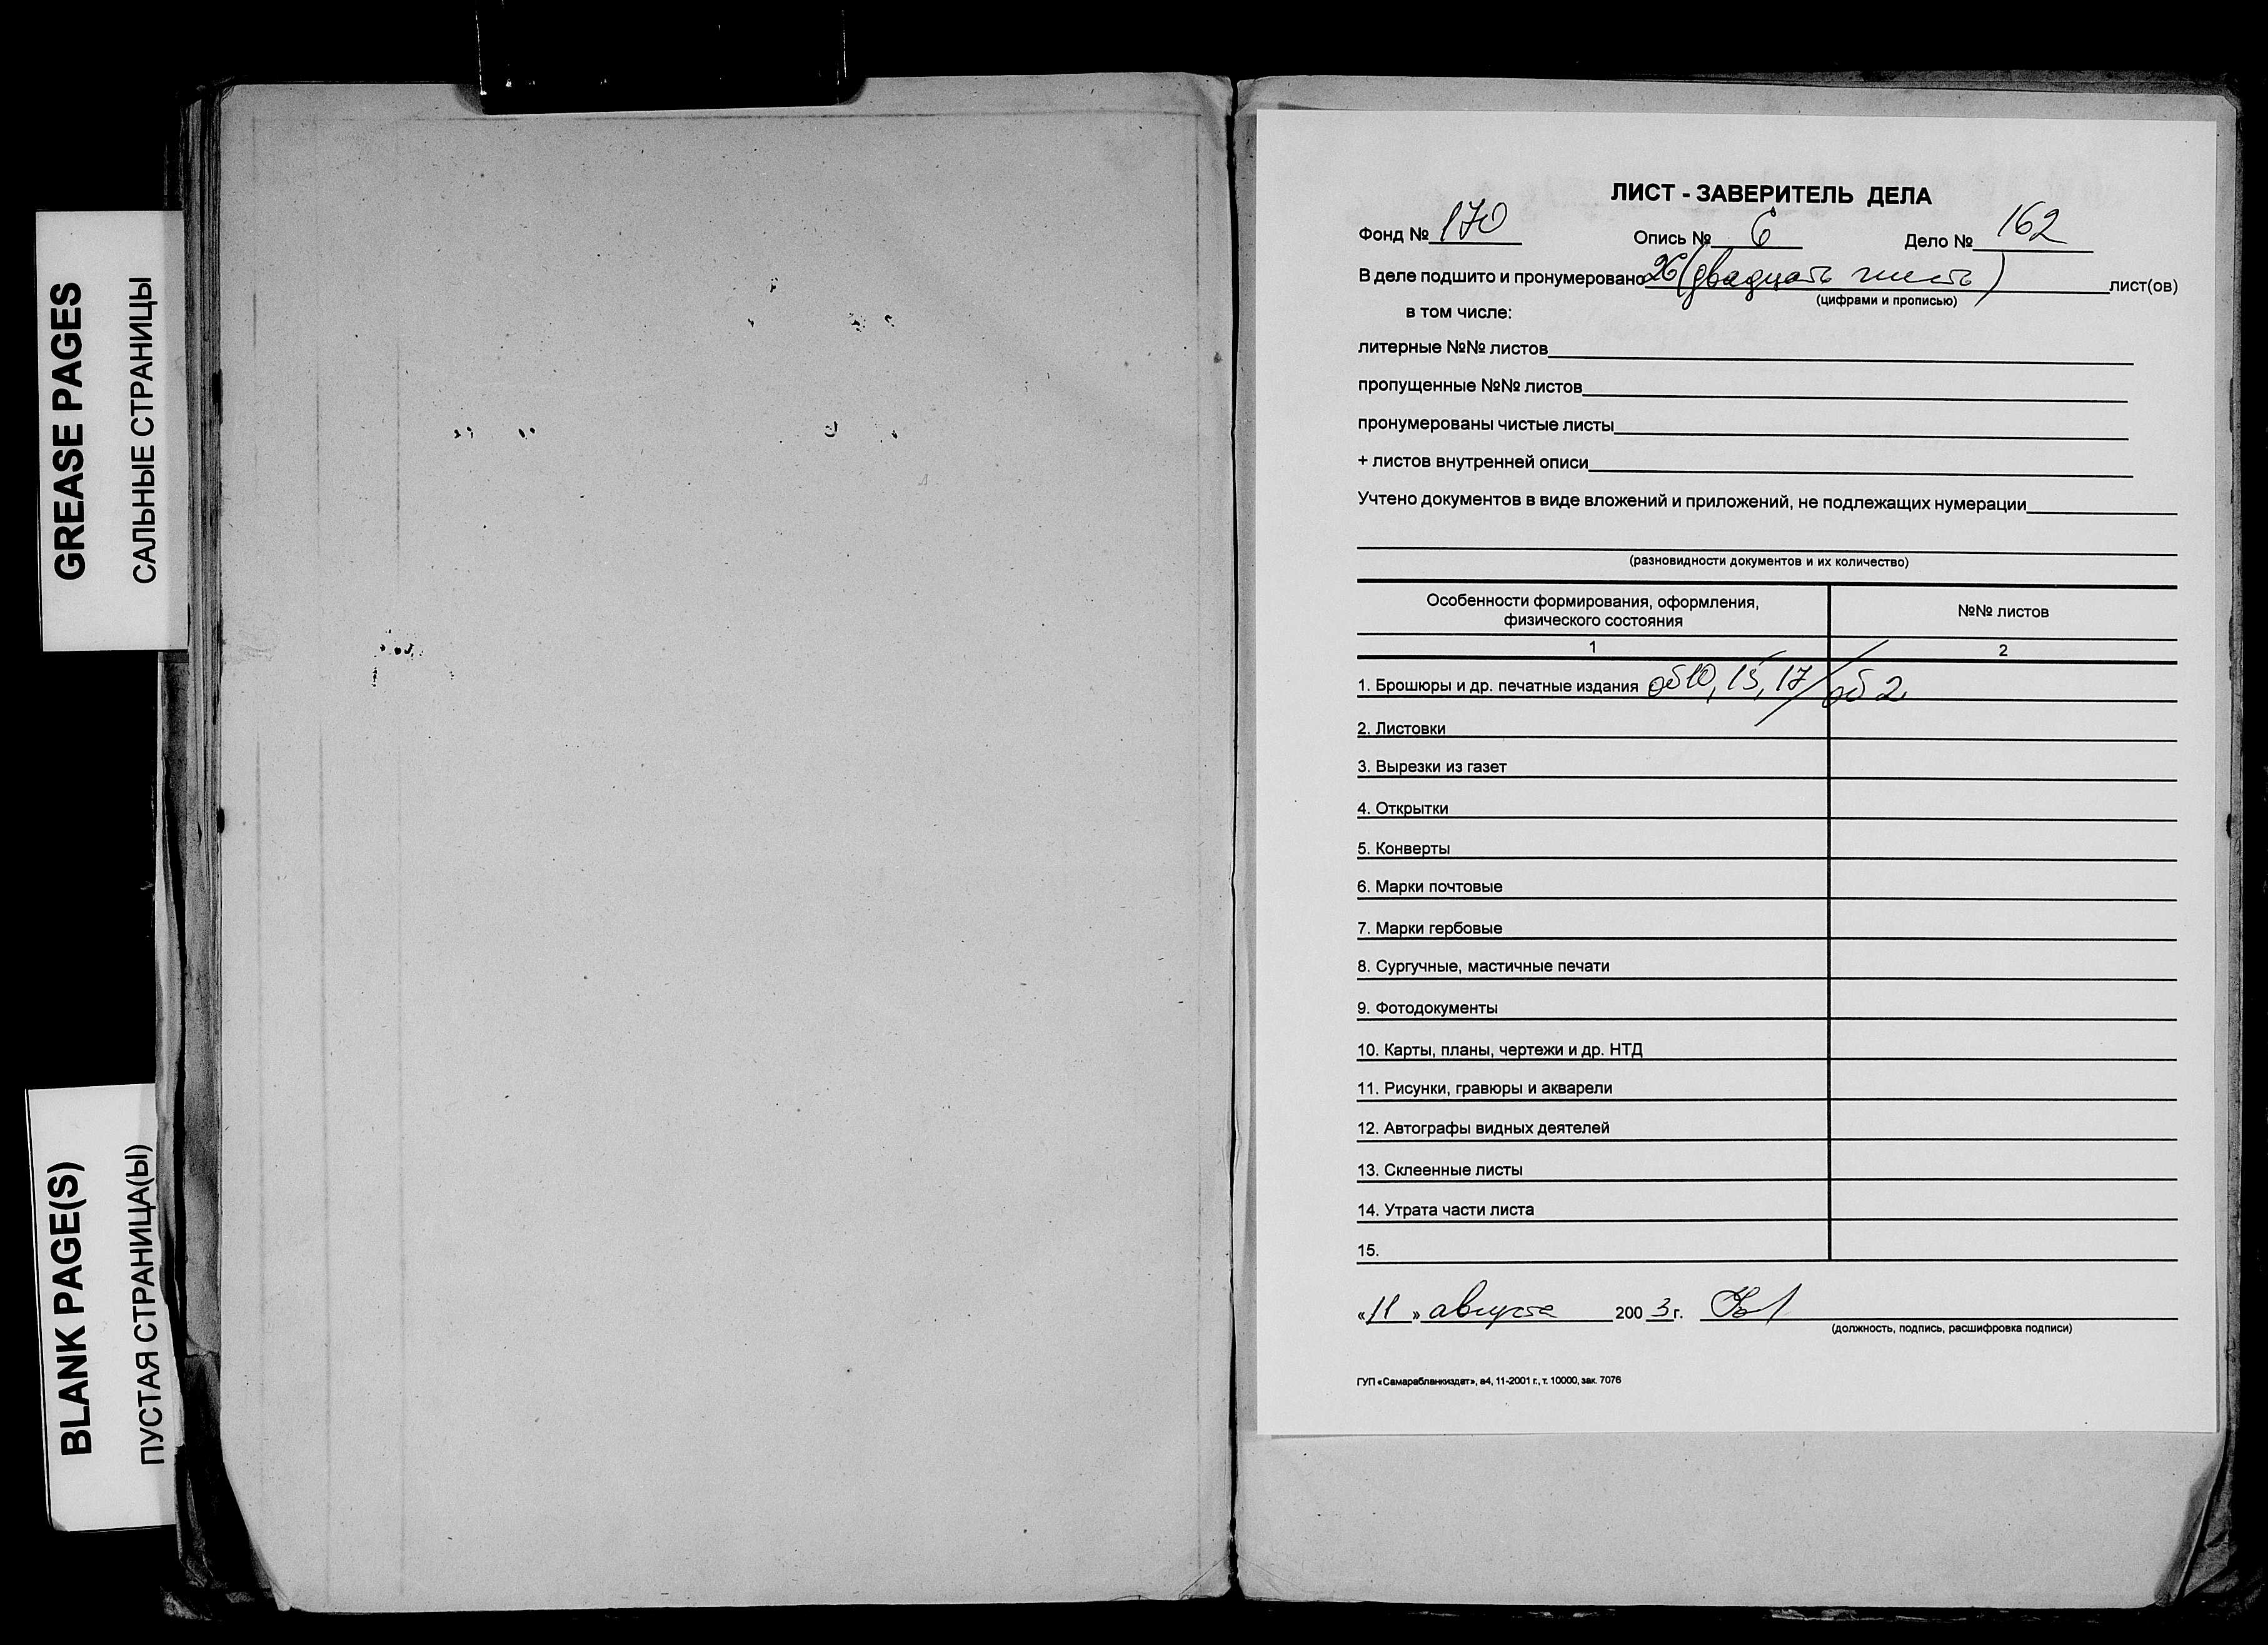 GREASE PAGES
САЛЬНЫЕ СТРАНИЦЫ
BLANK PAGE(S)
ПУСТАЯ СТРАНИЦА(Ы)
ЛИСТ - ЗАВЕРИТЕЛЬ ДЕЛА
Фонд № 170 Опись № 6 Дело № 162
В деле подшито и пронумеровано 26 (двадцать шесть) лист(ов)
(цифрами и прописью)
в том числе:
литерные №№ листов
пропущенные №№ листов
пронумерованы чистые листы
+ листов внутренней описи
Учтено документов в виде вложений и приложений, не подлежащих нумерации
(разновидности документов и их количество)
Особенности формирования, оформления, №№ листов
физического состояния
1 2
1. Брошюры и др. печатные издания об10, 15, 17 / об 2.
2. Листовки
3. Вырезки из газет
4. Открытки
5. Конверты
6. Марки почтовые
7. Марки гербовые
8. Сургучные, мастичные печати
9. Фотодокументы
10. Карты, планы, чертежи и др. НТД
11. Рисунки, гравюры и акварели
12. Автографы видных деятелей
13. Склеенные листы
14. Утрата части листа
15.
«11» августа 2003г.
(должность, подпись, расшифровка подписи)
ГУП «Самарабланкиздат», а4, 11-2001 г., т. 10000, зак. 7076